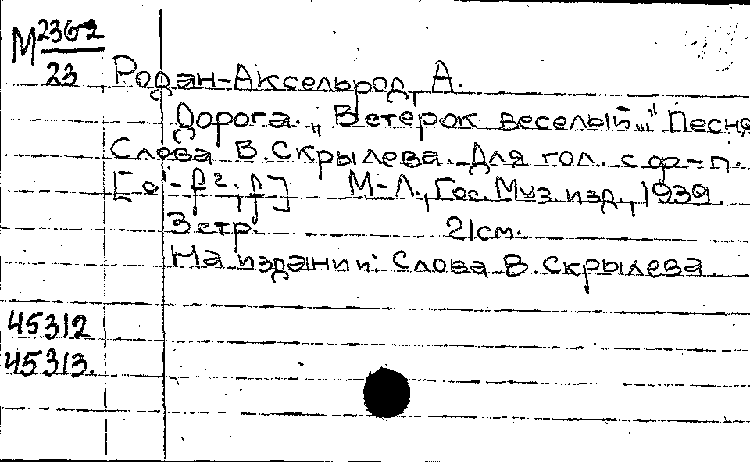 М 236-2
23
Родан-Аксельрод, А.
Дорога. „Ветерок веселый..." Песня
Слова В. Скрылева. Для гол. с ф-п.
М-Л., Гос. Муз. изд., 1939.
3 стр. 21 см.
На издании: Слова В. Скрылева.
45312
45313.